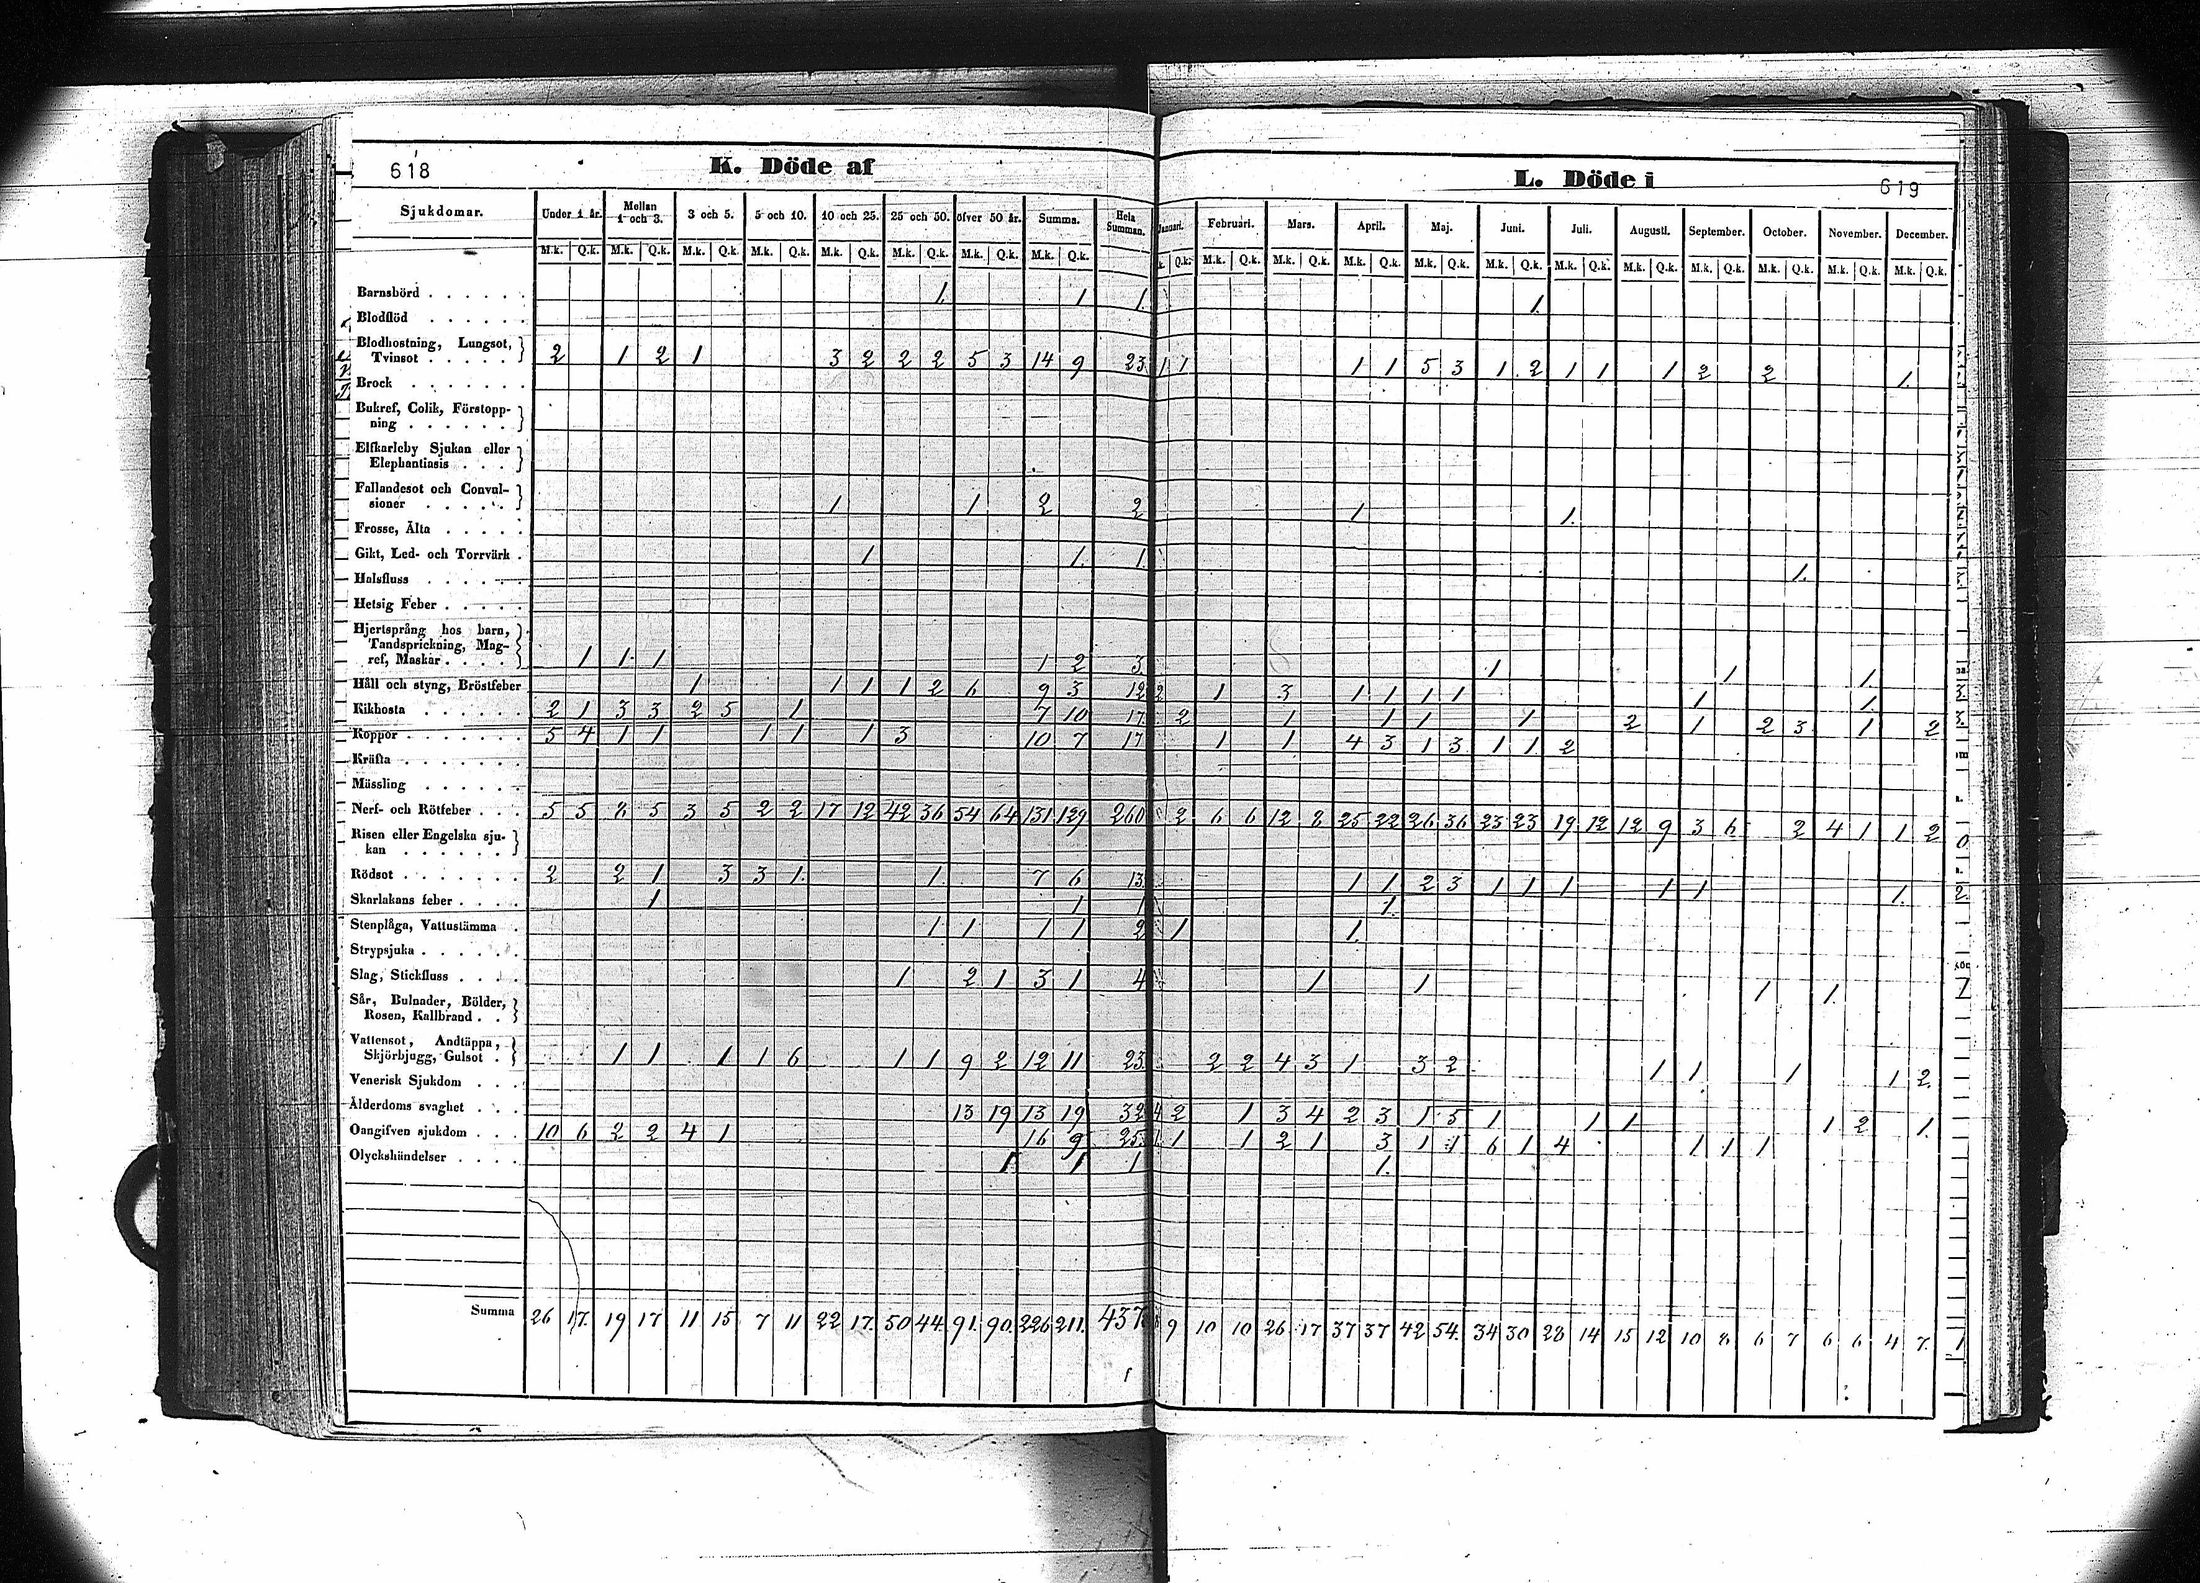 618
K. Döde af
Sjukdomar. Under 1 år. Mellan 1 och 3. 3 och 5. 5 och 10. 10 och 25. 25 och 50. öfver 50 år. Summa. Hela Summan.
M.k. Q.k. M.k. Q.k. M.k. Q.k. M.k. Q.k. M.k. Q.k. M.k. Q.k. M.k. Q.k. M.k. Q.k.
Barnsbörd . . . . . . 1. 1 1.
Blodflöd . . . . . .
Blodhostning, Lungsot,
Tvinsot . . . . . 2 1 2 1 3 2 2 2 5 3 14 9 23
Brock . . . . . . .
Bukref, Colik, Förstopp-
ning . . . . . .
Elfkarleby Sjukan eller
Elephantiasis . . .
Fallandesot och Convul-
sioner . . . . . 1 1 2 2
Frosse, Älta . . . . .
Gikt, Led- och Torrvärk . 1 1. 1.
Halsfluss . . . . .
Hetsig Feber . . . . .
Hjertsprång hos barn,
Tandsprickning, Mag-
ref, Maskar . . . . 1 1 1 1 2 3
Håll och styng, Bröstfeber 1 1 1 1 2 6 9 3 12
Kikhosta . . . . . . 2 1 3 3 2 5 1 7 10 17
Koppor . . . . . . . 5 4 1 1 1 1 1 3 10 7 17
Kräfta . . . . . . .
Mässling . . . . . .
Nerf- och Rötfeber . . . 5 5 8 5 3 5 2 2 17 12 42 36 54 64 131 129 260
Risen eller Engelska sju-
kan . . . . . .
Rödsot . . . . . . . 2 2 1 3 3 1. 1. 7 6 13
Skarlakans feber . . . . 1 1 1
Stenplåga, Vattustämma . 1 1 1 1 2
Strypsjuka . . . . . .
Slag, Stickfluss . . . . 1 2 1 3 1 4
Sår, Bulnader, Bölder,
Rosen, Kallbrand . .
Vattensot, Andtäppa,
Skjörbjugg, Gulsot . 1 1 1 1 6 1 1 9 2 12 11 23
Venerisk Sjukdom . . .
Ålderdoms svaghet . . . 13 19 13 19 32
Oangifven sjukdom . . . 10 6 2 2 4 1 16 9 25
Olyckshändelser . . . . 1 1 1
Summa 26 17. 19 17 11 15 7 11 22 17. 50 44. 91. 90. 226 211. 437
619
L. Döde i
Januari. Februari. Mars. April. Maj. Juni. Juli. Augusti. September. October. November. December.
Q.k. M.k. Q.k. M.k. Q.k. M.k. Q.k. M.k. Q.k. M.k. Q.k. M.k. Q.k. M.k. Q.k. M.k. Q.k. M.k. Q.k. M.k. Q.k. M.k. Q.k.
1.
1 1 1 1 5 3 1 2 1 1 1 2 2 1.
1 1.
1.
1 1 1
2 1 3 1 1 1 1 1 1.
2 1 1 1 1 2 1 2 3 1 2
1 1 4 3 1 3 1 1. 2
2 6 6 12 8 25 22 26 36 23 23 19 12 12 9 3 6 2 4 1 1 2
1 1 2 3 1 1 1 1 1 1.
1.
1 1.
1 1 1 1.
2 2 4 3 1 3 2 1 1 1 1 2
4 2 1 3 4 2 3 1 5 1 1 1 1 2 1.
1 1 1 2 1 3 1 1 6 1 4 1 1 1
1.
9 10 10 26 17 37 37 42 54. 34 30 28 14 15 12 10 8 6 7 6 6 4 7.